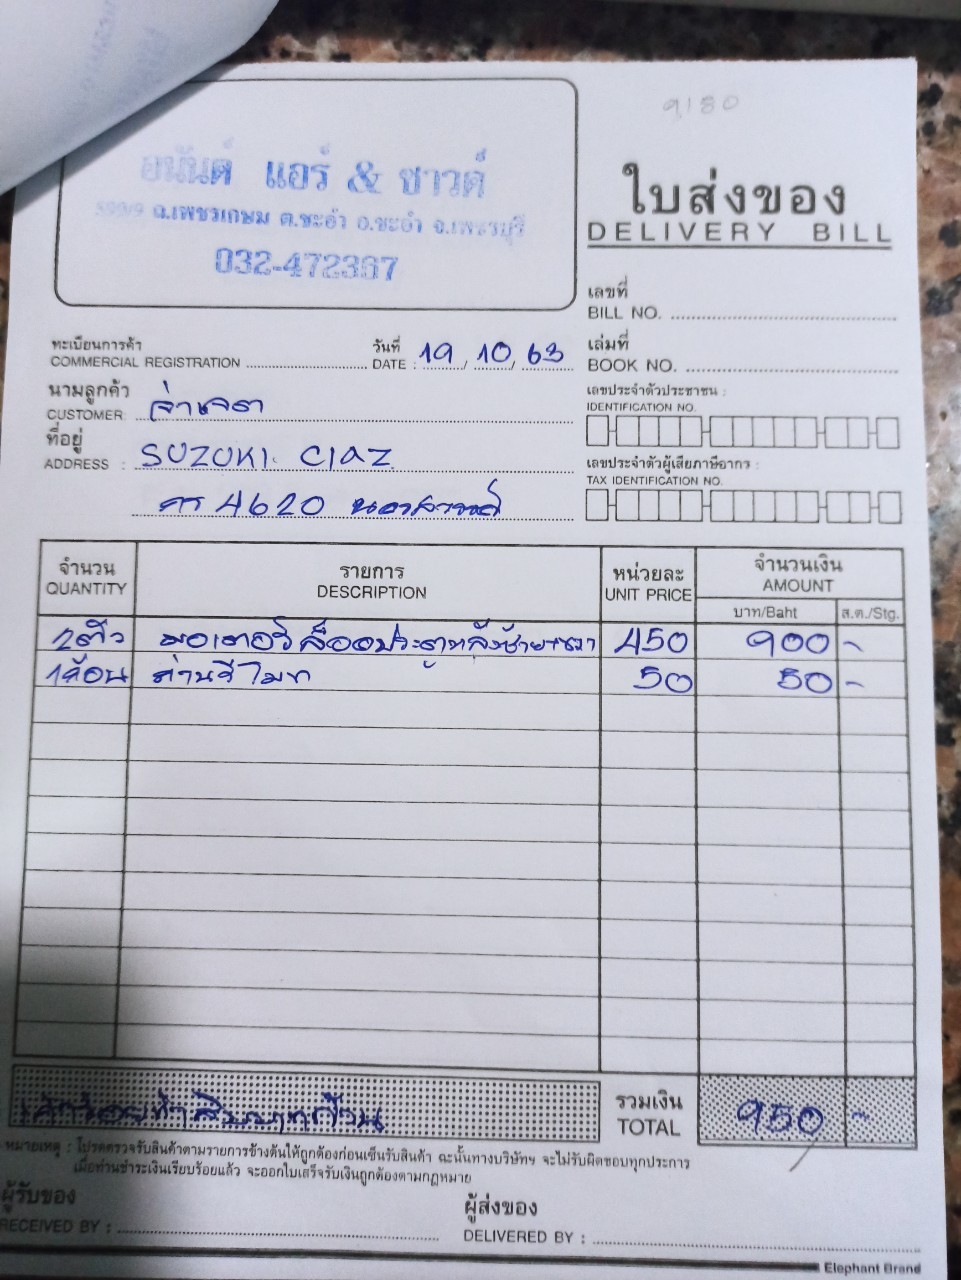 9150
อนันต์ แอร์ & ซาวด์
ถ.เพชรเกษม ต.ชะอำ อ.ชะอำ จ.เพชรบุรี
032-472367
ใบส่งของ
DELIVERY BILL
เลขที่
BILL NO.
ทะเบียนการค้า
COMMERCIAL REGISTRATION
วันที่
DATE : 19/10/63
เล่มที่
BOOK NO.
นามลูกค้า
CUSTOMER
เลขประจำตัวประชาชน :
IDENTIFICATION NO.
ที่อยู่
ADDRESS : SUZUKI CIAZ
4620
เลขประจำตัวผู้เสียภาษีอากร :
TAX IDENTIFICATION NO.
จำนวน
QUANTITY
รายการ
DESCRIPTION
หน่วยละ
UNIT PRICE
จำนวนเงิน
AMOUNT
บาท/Baht
ส.ต./Stg.
2ตัว มอเตอร์ล็อคประตูหลังซ้าย+ขวา 450 900 -
1ก้อน ถ่านรีโมท 50 50 -
เก้าร้อยห้าสิบบาทถ้วน
รวมเงิน
TOTAL
950 -
หมายเหตุ : โปรดตรวจรับสินค้าตามรายการข้างต้นให้ถูกต้องก่อนเซ็นรับสินค้า ฉะนั้นทางบริษัทฯ จะไม่รับผิดชอบทุกประการ
เมื่อท่านชำระเงินเรียบร้อยแล้ว จะออกใบเสร็จรับเงินถูกต้องตามกฎหมาย
ผู้รับของ
RECEIVED BY :
ผู้ส่งของ
DELIVERED BY :
Elephant Brand